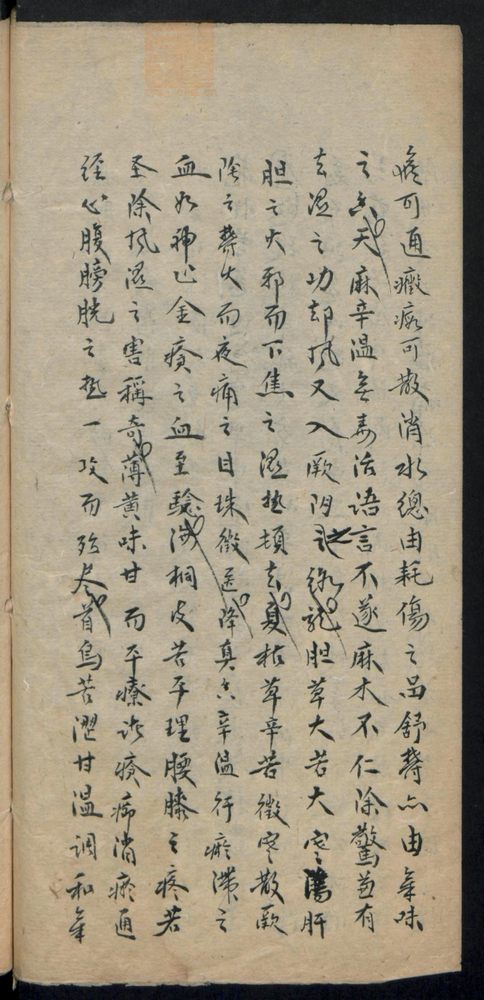 瘡可通癥瘕可散消水總由耗傷之品舒鬱亦由氣味
之六天麻辛温無毒治語言不遂麻木不仁除驚並有
去濕之功却風又入厥阴之線龍胆草大苦大寒瀉肝
胆之火邪而下焦之濕热頓去夏枯草辛苦微寒散厥
陰之鬱火而夜痛之目珠徵医降真六辛温行瘀滯之
血如神止金瘡之血至驗海桐皮苦平理腰膝之疼若
圣除風濕之害稱奇薄黄味甘而平療諸瘡癤消瘀通
経心腹膀胱之热一攻而殆尽首烏苦澀甘温調和氣